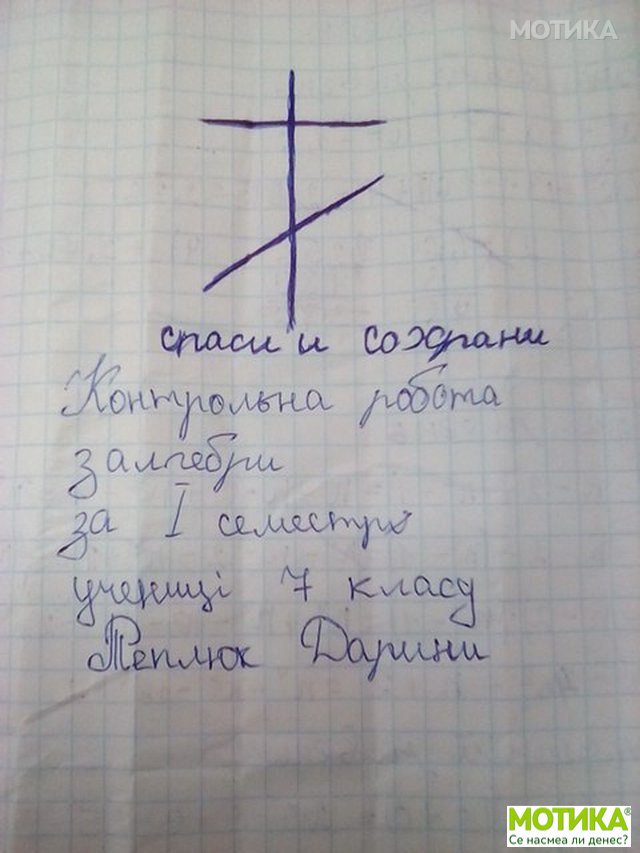 МОТИКА
спаси и сохрани
Контрольна робота
з алгебри
за I семестр
учениці 7 класу
Теплюк Дарини
МОТИКА®
Се насмеа ли денес?